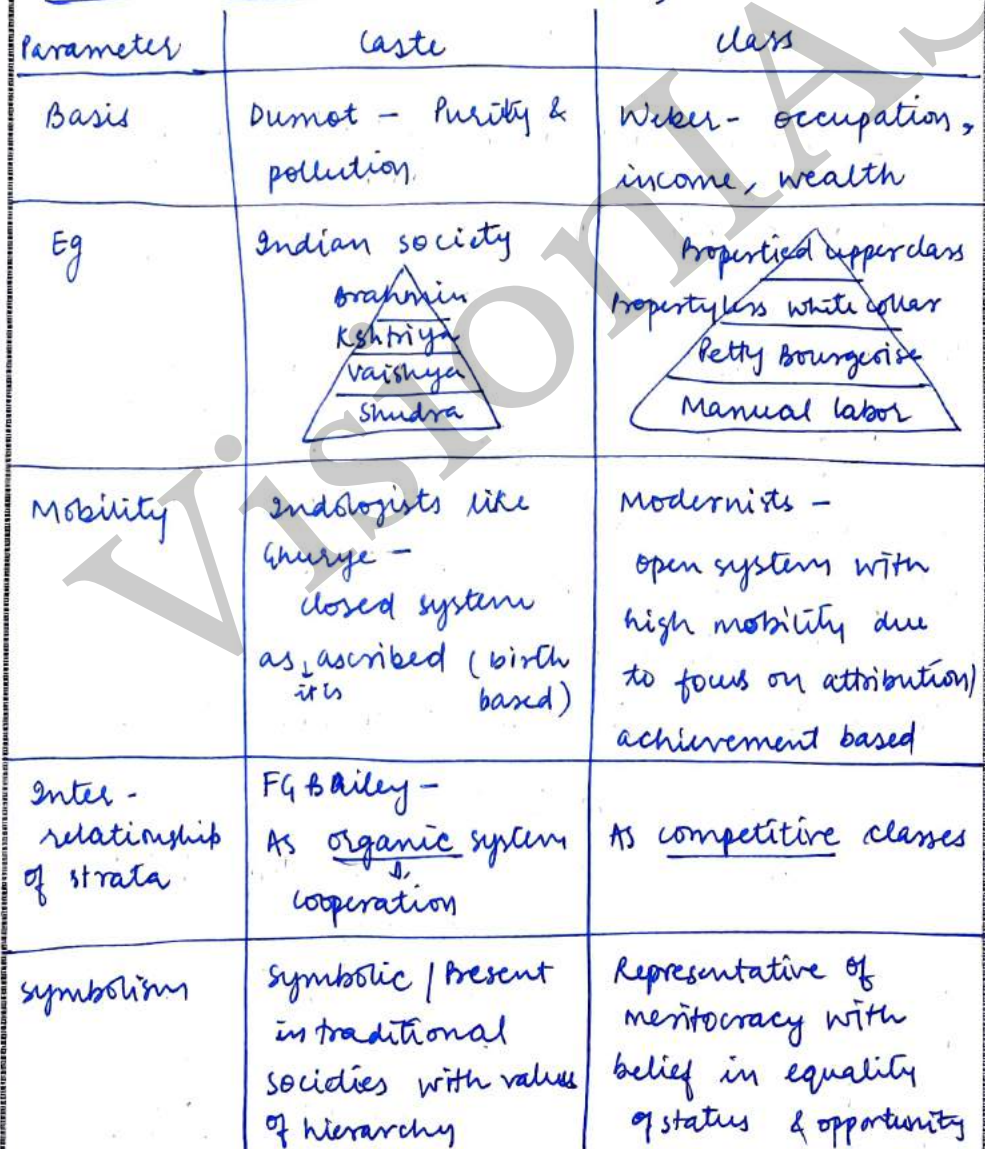 Parameter
Caste
Class
Basis
Dumot - Purity &
pollution.
Weber - occupation,
income, wealth
Eg
Indian society
Brahmin
Kshtriya
Vaishya
Shudra
Propertied upperclass
Propertyless white collar
Petty Bourgeoise
Manual labor
Mobility
Indologists like
Ghurye -
closed system
as it is ascribed (birth
based)
Modernists -
open system with
high mobility due
to focus on attribution/
achievement based
Inter-
relationship
of strata
FG BAiley -
As organic system
cooperation
As competitive classes
symbolism
symbolic / Present
in traditional
societies with values
of hierarchy
Representative of
meritocracy with
belief in equality
of status & opportunity
VisionIAS